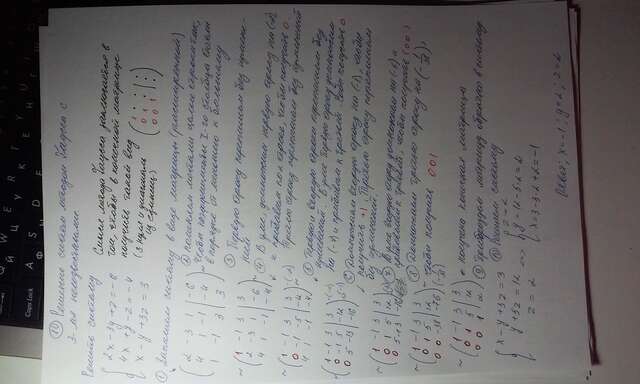 ⑩ Решение систем методом Гаусса с
3-мя неизвестными.
Решить систему
2x - 3y + z = -6
4x + y - z = -4
x - y + 3z = 3
Смысл метода Гаусса заключается в
том, чтобы в конечной матрице
получить такой вид
(3 нуля и диагональ
из единиц)
① Запишем систему в виде матрицы (расширенной)
2 -3 1 | -6
4 1 -1 | -4
1 -1 3 | 3
② поменяем местами целые строки так,
чтобы коэффициенты 1-го столбца стояли
в порядке от меньшего к большему
~ 1 -1 3 | 3
2 -3 1 | -6
4 1 -1 | -4
③ Первую строку перепишем без
④ В уме, умножим первую строку на (-2)
и прибавим ко 2 строке, чтобы получить 0.
Третью строку перепишем без изменений
~ 1 -1 3 | 3
0 -1 -5 | -12
4 1 -1 | -4
⑤ Первую и вторую строки перепишем без
изменений. В уме первую строку умножим
на (-4) и прибавим к третьей, чтобы получить 0
~ 1 -1 3 | 3
0 -1 -5 | -12
0 5 -13 | -16
⑥ Умножаем вторую строку на (-1), чтобы
получить +1. Третью строку перепишем
без изменений.
~ 1 -1 3 | 3
0 1 5 | 12
0 5 -13 | -16
⑦ В уме вторую строку умножим на (-5) и
прибавим к третьей, чтобы получить (00)
~ 1 -1 3 | 3
0 1 5 | 12
0 0 -38 | -76
⑧ Умножаем третью строку на (-1/38),
чтобы получить 001
~ 1 -1 3 | 3
0 1 5 | 12
0 0 1 | 2
← получена конечная матрица
⑨ Преобразуем матрицу обратно в систему
⑩ Решаем систему
x - y + 3z = 3
y + 5z = 12
z = 2
<=>
z = 2
y = 12 - 5·2 = 2
x = 3 - 3·2 + 2 = -1
Ответ: x = -1; y = 2; z = 2
Caps Lock